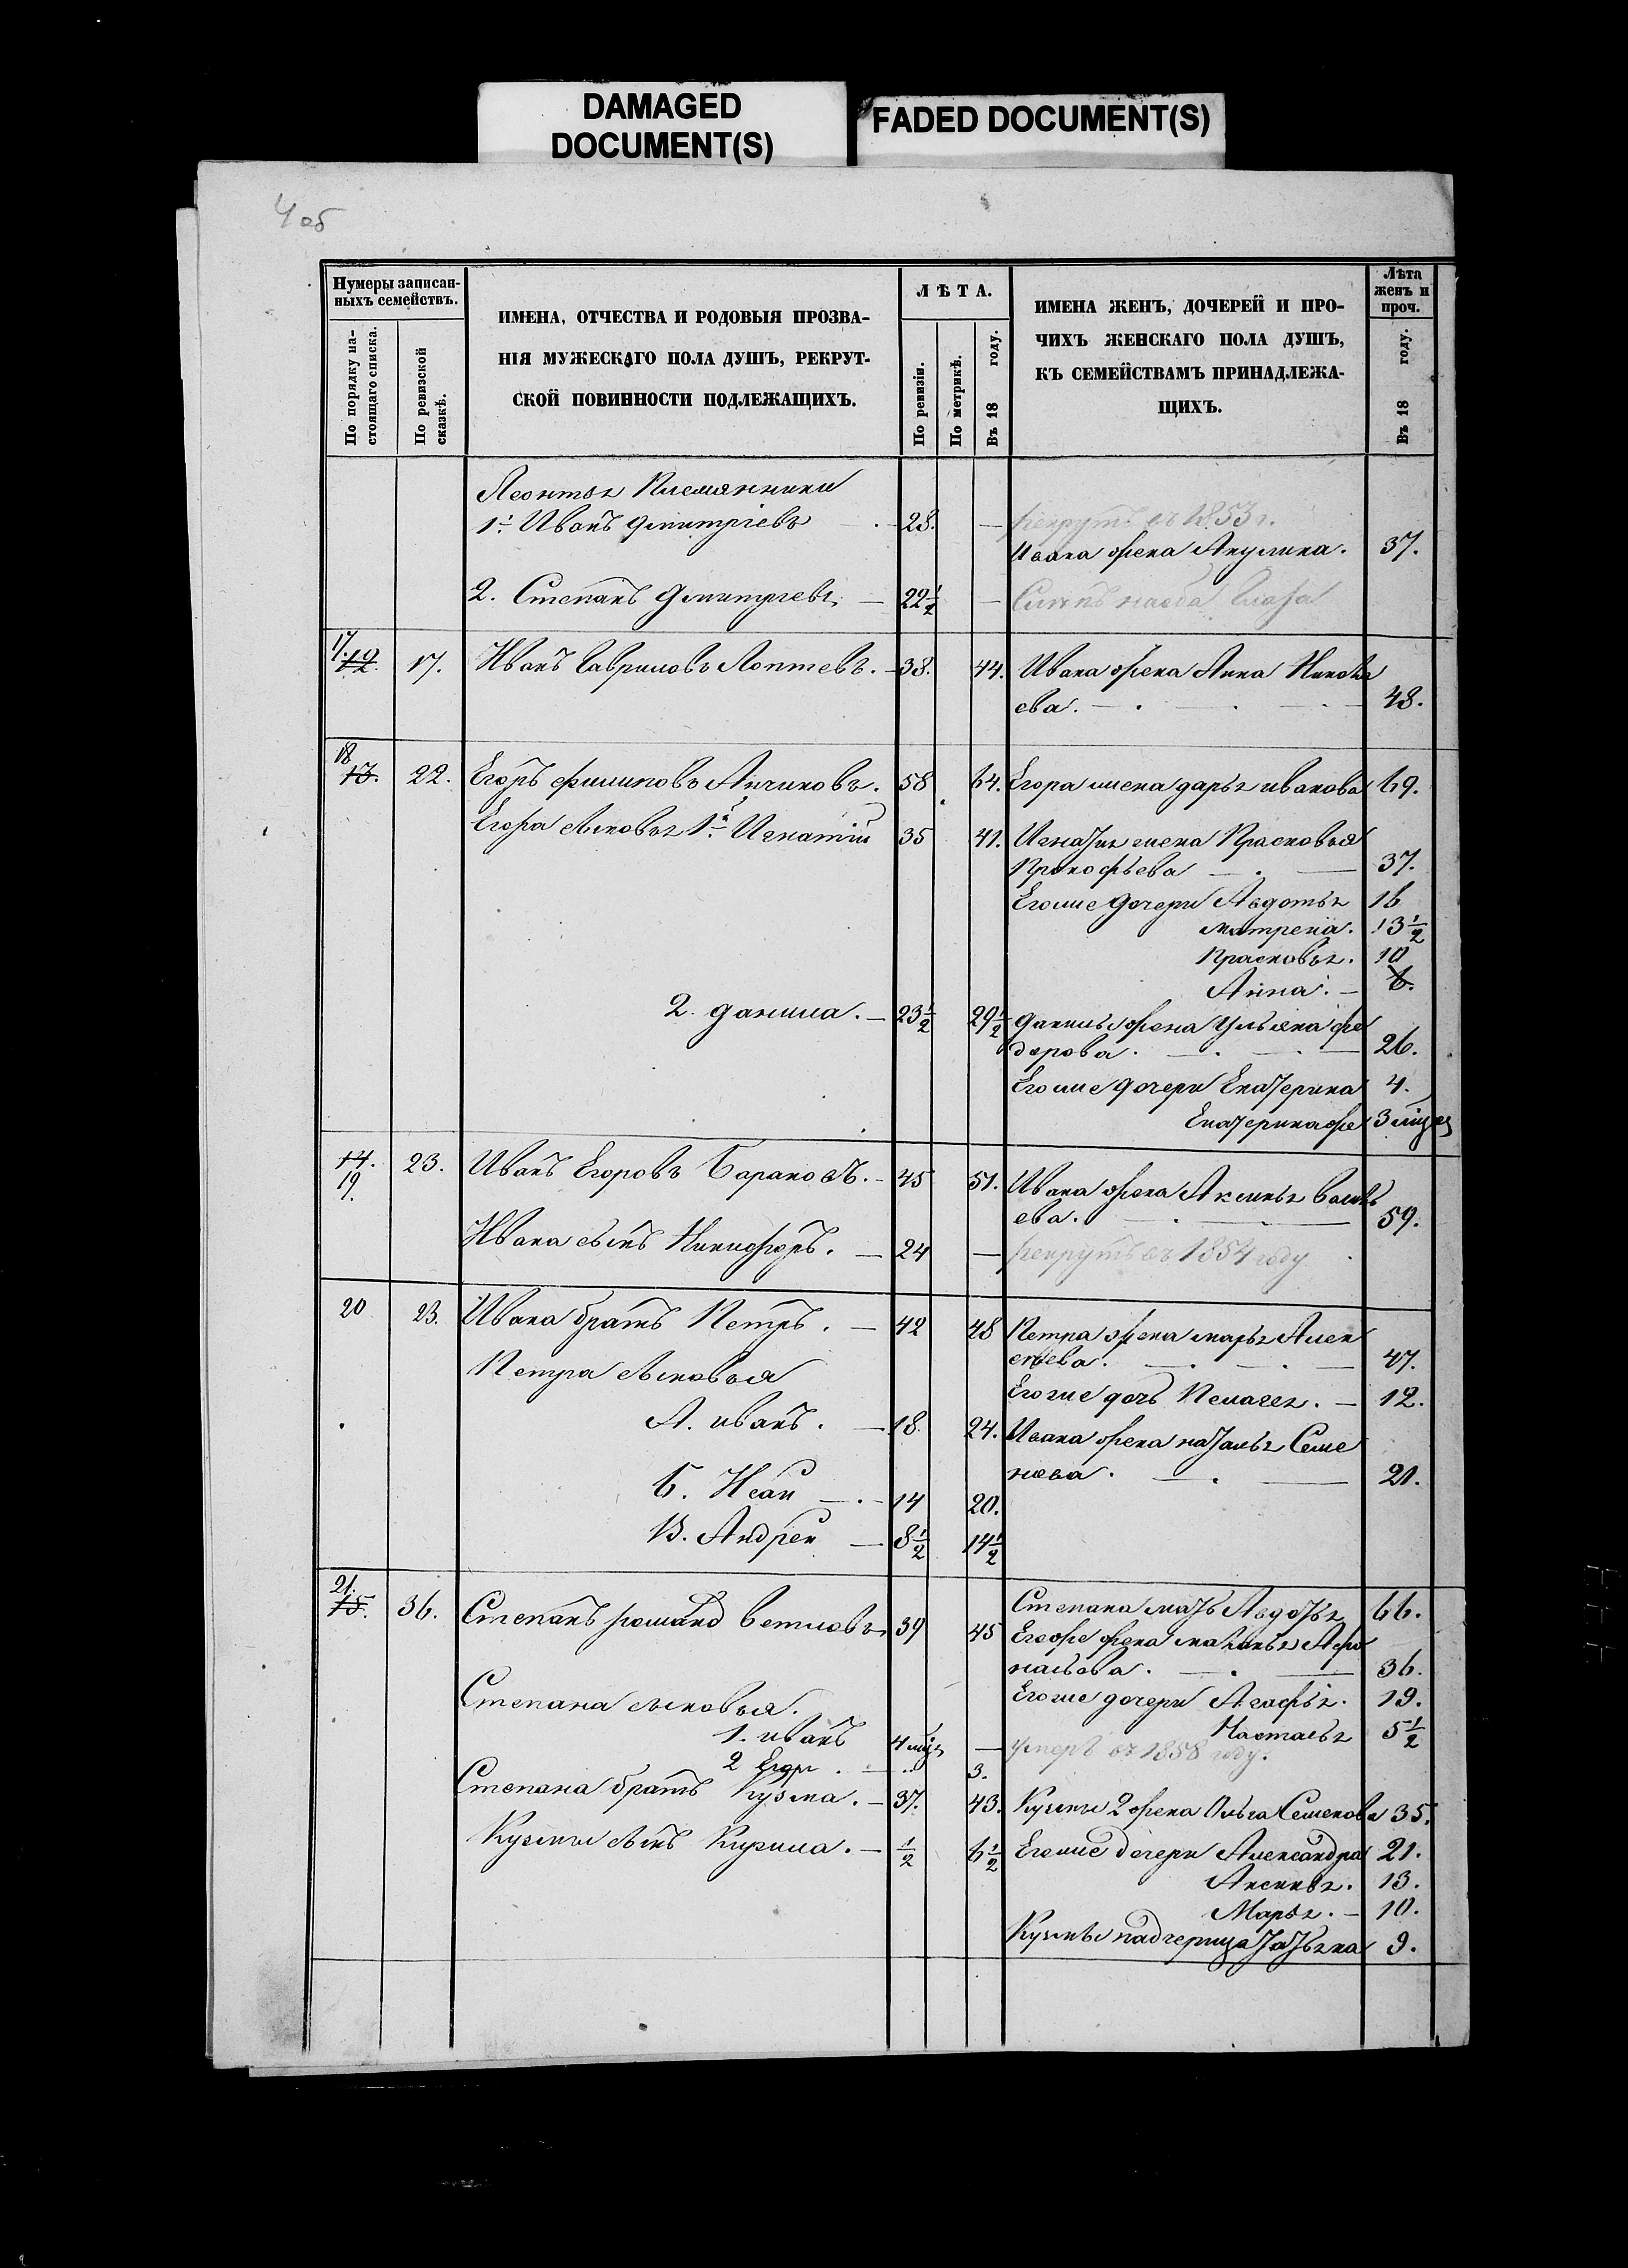 DAMAGED
DOCUMENT(S)
FADED DOCUMENT(S)
4 об
Нумеры записан-
ныхъ семействъ.
По порядку на-
стоящаго списка.
По ревизской
сказкѣ.
ИМЕНА, ОТЧЕСТВА И РОДОВЫЯ ПРОЗВА-
НІЯ МУЖЕСКАГО ПОЛА ДУШЪ, РЕКРУТ-
СКОЙ ПОВИННОСТИ ПОДЛЕЖАЩИХЪ.
ЛѢТА.
По ревизіи.
По метрикѣ.
Въ 18 году.
ИМЕНА ЖЕНЪ, ДОЧЕРЕЙ И ПРО-
ЧИХЪ ЖЕНСКАГО ПОЛА ДУШЪ,
КЪ СЕМЕЙСТВАМЪ ПРИНАДЛЕЖА-
ЩИХЪ.
Лѣта
женъ и
проч.
Въ 18 году.
Племянники
1. Иванъ Дмитріевъ 28. — рекрутъ въ 1853 г.
Ивана жена Акулина. 37.
2. Степанъ Дмитріевъ — 22 1/2 —
17. 12. 17. Иванъ Гавриловъ Лоптевъ. — 38. 44. Ивана жена Анна
ева. — 48.
18 13. 22. Егоръ Филиповъ 58 64. Егора жена дарья иванова 69.
Егора сыновья 1й Игнатій 35 41. Игнатія жена Прасковья
Прокофьева — 37.
Его же дочери Авдотья 16
матрена. 13 1/2
Прасковья. 10
Анна. — 6.
2. данила. — 23 1/2 29 1/2 данилы жена Ульяна фе
дорова. — 26.
Его же дочери Екатерина 4.
Екатерина же 3
14. 19. 23. Иванъ Егоровъ Барановъ. — 45 51. Ивана жена Аксинья
ева. — 59.
Ивана сынъ Никифоръ. — 24 — рекрутъ въ 1854 году
20 23. Ивана братъ Петръ. — 42 48 Петра жена марья Алек
сѣева. — 47.
Петра сыновья
Его же дочь Пелагея. — 12.
А. иванъ. — 18. 24. Ивана жена наталья Семе
нова. — 21.
Б. Исай — 14 20.
В. Андрей — 8 1/2 14 1/2
21. 15. 36. Степанъ 39 45
Степана мать Авдотья 66.
Его же жена маланья Афо
насьева. — 36.
Степана сыновья.
Его же дочери Агафья. 19.
Настасья 5 1/2
1. иванъ 4 — умеръ въ 1858 году.
2 Егоръ. — 3.
Степана братъ Кузма. — 37. 43. Кузмы 2 жена Ольга Семенова 35.
Кузмы сынъ — 1/2 6 1/2 Его же дочери Александра 21.
Аксинья. 13.
Марья. — 10.
Кузмы падчерица Татьяна 9.